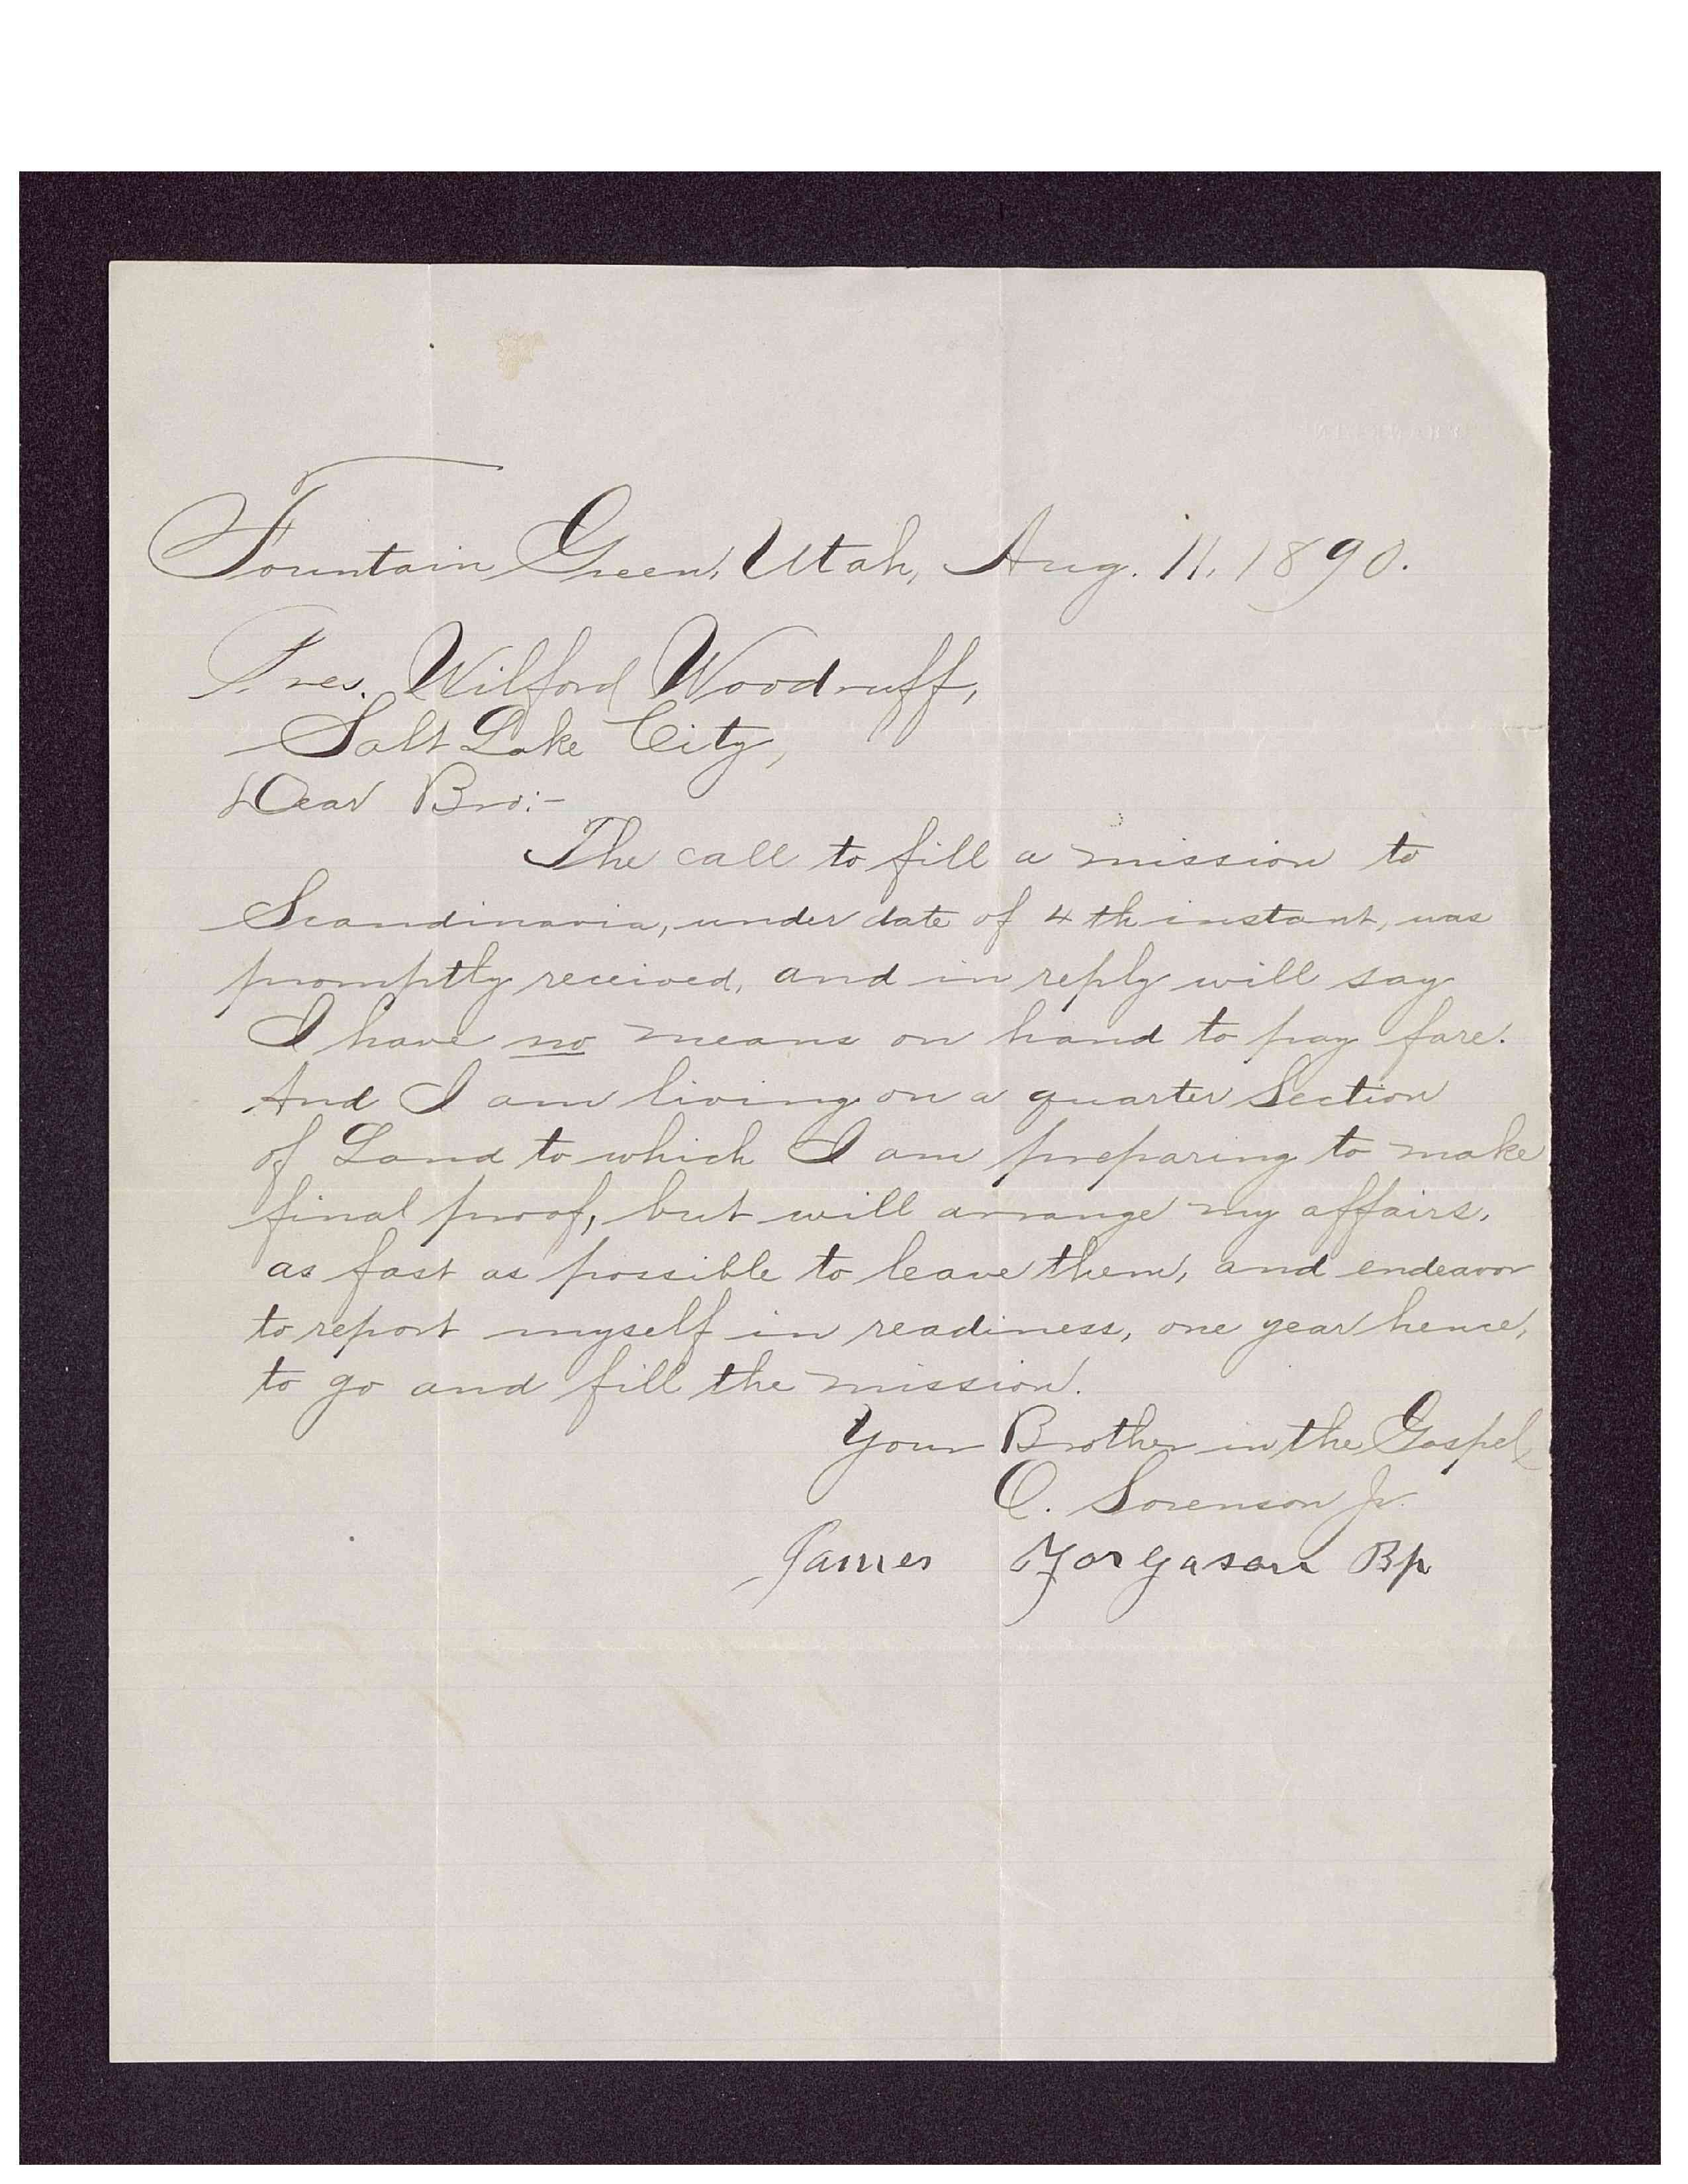 Fountain Green, Utah, Aug. 11, 1890.
Pres. Wilford Woodruff,
Salt Lake City,
Dear Bro:-
The call to fill a mission to
Scandinavia, under date of 4th instant, was
promptly received, and in reply will say
I have no means on hand to pay fare.
And I am living on a quarter Section
of Land to which I am preparing to make
final proof, but will arrange my affairs,
as fast as possible to leave them, and endeavor
to report myself in readiness, one year hence,
to go and fill the mission.
Your Brother in the Gospel
C. Sorenson Jr.
James Yorgason Bp